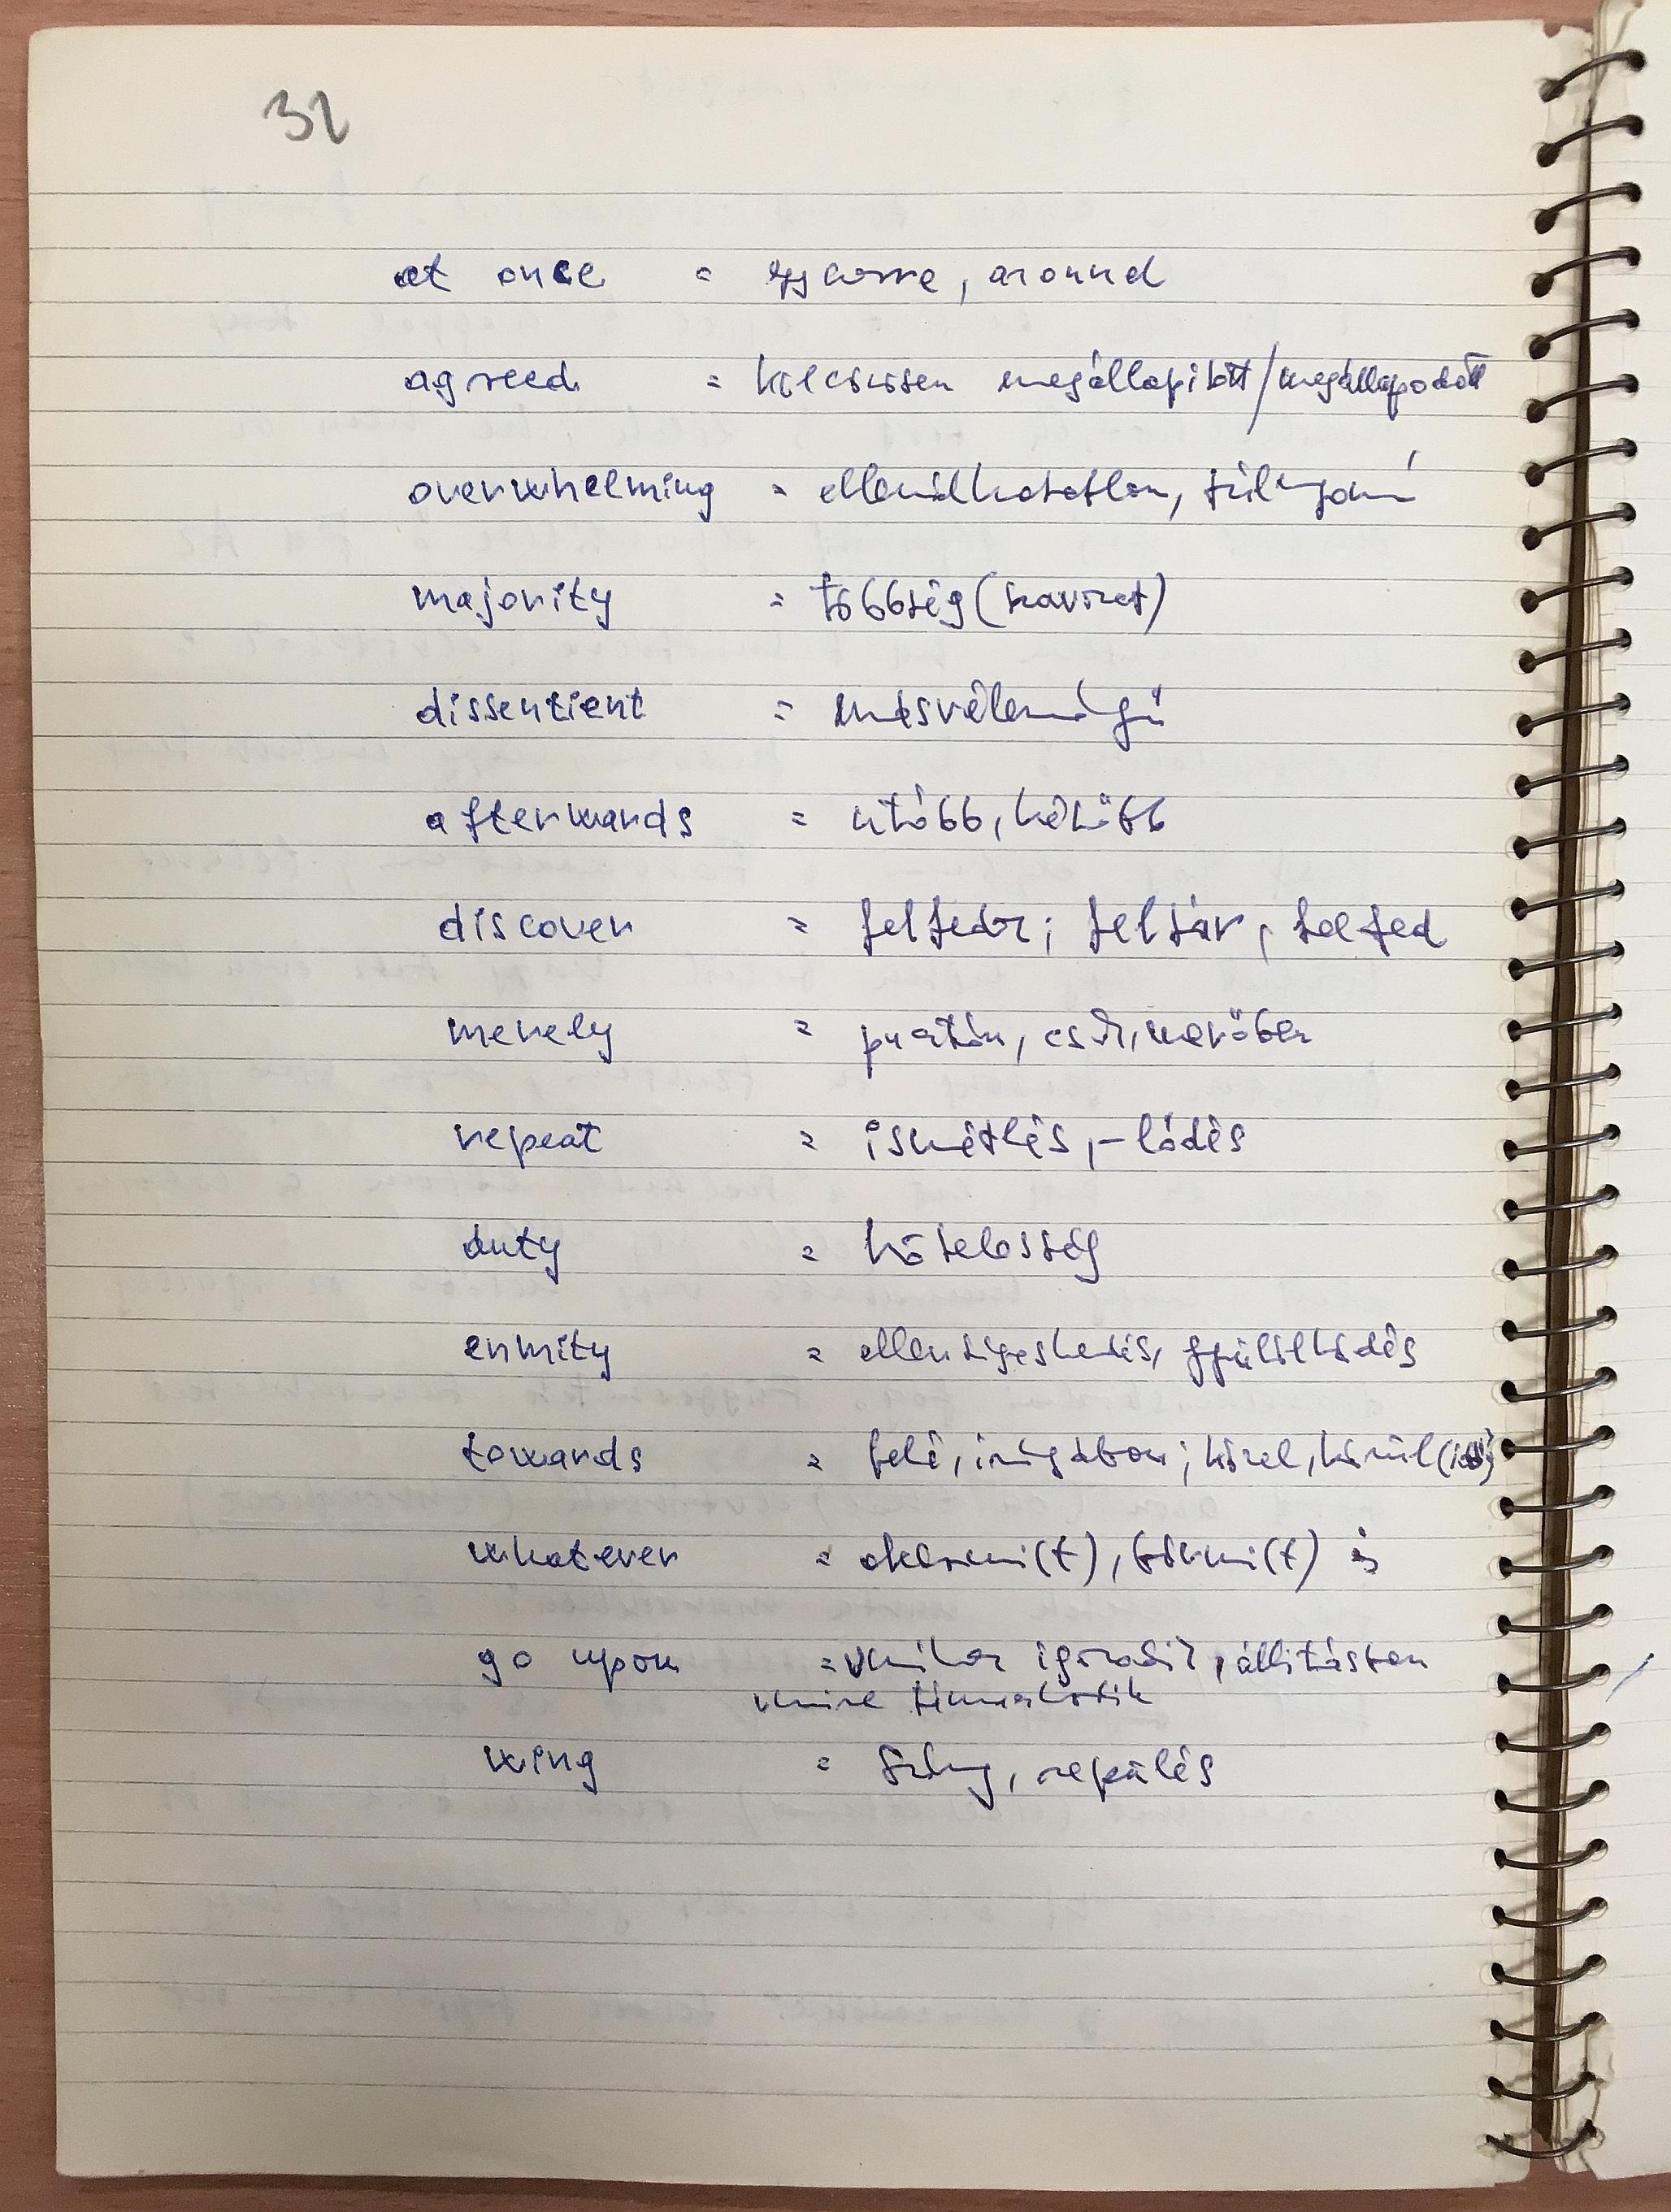 32
at once = egyszerre, azonnal
agreed = kölcsönösen megállapított/megállapodott
overwhelming = ellenállhatatlan, túlnyomó
majority = többség (szavazat)
dissentient = másvéleményű
afterwards = utóbb, később
discover = felfedez; feltár, felfed
merely = pusztán, csak, merőben
repeat = ismétlés, -lődés
duty = kötelesség
enmity = ellenségeskedés, gyűlölködés
towards = felé, irányában; közel, körül (idő)
whatever = akármi(t), bármi(t) is
go upon = vmihez igazodik, állításban
vmire támaszkodik
wing = szárny, repülés